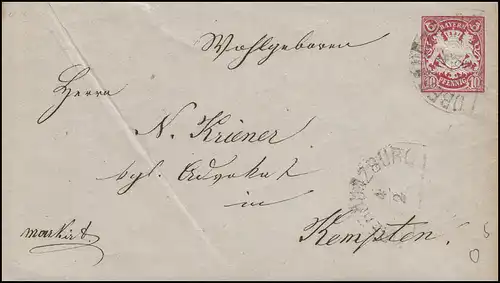 Wohlgeboren
BAYERN
10 PFENNIG 10
Herrn
N. Kriener
kgl. Advokat
in
Kempten.
markirt.
NZBURG
4
2